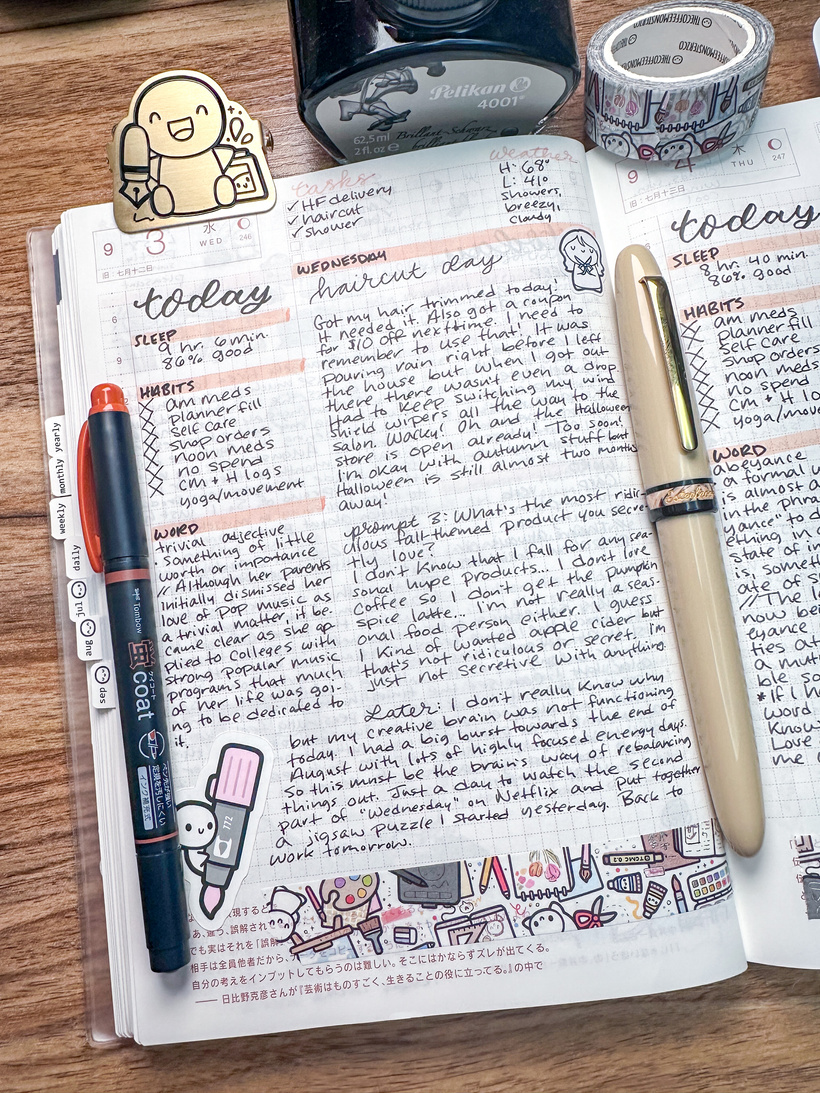 THECOFFEEMONSTERZCO
Pelikan
4001®
62,5 ml
2 fl. oz e
Brillant-Schwarz
tasks
✓ HF delivery
✓ haircut
✓ shower
weather
H: 68°
L: 41°
showers,
breezy,
cloudy
9 3 水
WED 246
旧:七月十二日
today
6
9
SLEEP
9 hr. 6 min.
86% good
HABITS
am meds
planner fill
self care
shop orders
noon meds
no spend
CM + H logs
yoga/movement
WORD
trivial adjective
: something of little
worth or importance
// Although her parents
initially dismissed her
love of pop music as
a trivial matter, it be-
came clear as she ap-
plied to colleges with
strong popular music
programs that much
of her life was goi-
ng to be dedicated to
it.
WEDNESDAY
haircut day
Got my hair trimmed today!
It needed it. Also got a coupon
for $10 off next time. I need to
remember to use that! It was
pouring rain right before I left
the house but when I got out
there there wasn't even a drop.
Had to keep switching my wind
shield wipers all the way to the
salon. Wacky! Oh and the Halloween
store is open already! Too soon!
I'm okay with autumn stuff but
Halloween is still almost two months
away!
prompt 3: What's the most ridic-
ulous fall-themed product you secre-
tly love?
I don't know that I fall for any sea-
sonal hype products... I don't love
coffee so I don't get the pumpkin
spice latte... I'm not really a seas-
onal food person either. I guess
I kind of wanted apple cider but
that's not ridiculous or secret. I'm
just not secretive with anything.
Later: I don't really know why
but my creative brain was not functioning
today. I had a big burst towards the end of
August with lots of highly focused energy days.
So this must be the brain's way of rebalancing
things out. Just a day to watch the second
part of "Wednesday" on Netflix and put together
a jigsaw puzzle I started yesterday. Back to
work tomorrow.
yearly
monthly
weekly
daily
jul
aug
sep
Tombow
蛍coat
ケイコート
TCMC 0.2
表現すると
あ、違う、誤解され
でも実はそれを「誤解
相手は全員他者だから、
自分の考えをインプットしてもらうのは難しい。そこにはかならずズレが出てくる。
―― 日比野克彦さんが『芸術はものすごく、生きることの役に立ってる。』の中で
9 4 木
THU 247
旧:七月十三日
today
SLEEP
8 hr. 40 min.
86% good
HABITS
am meds
planner fill
self care
shop orders
noon meds
no spend
CM + H logs
yoga/move
WORD
abeyance
a formal
is almost a
in the phra
yance" to d
ething in
state of in
is, someth
ate of s
// The l
now bein
eyance
ties at
a mut
ble so
* If I h
word
know
Love
me